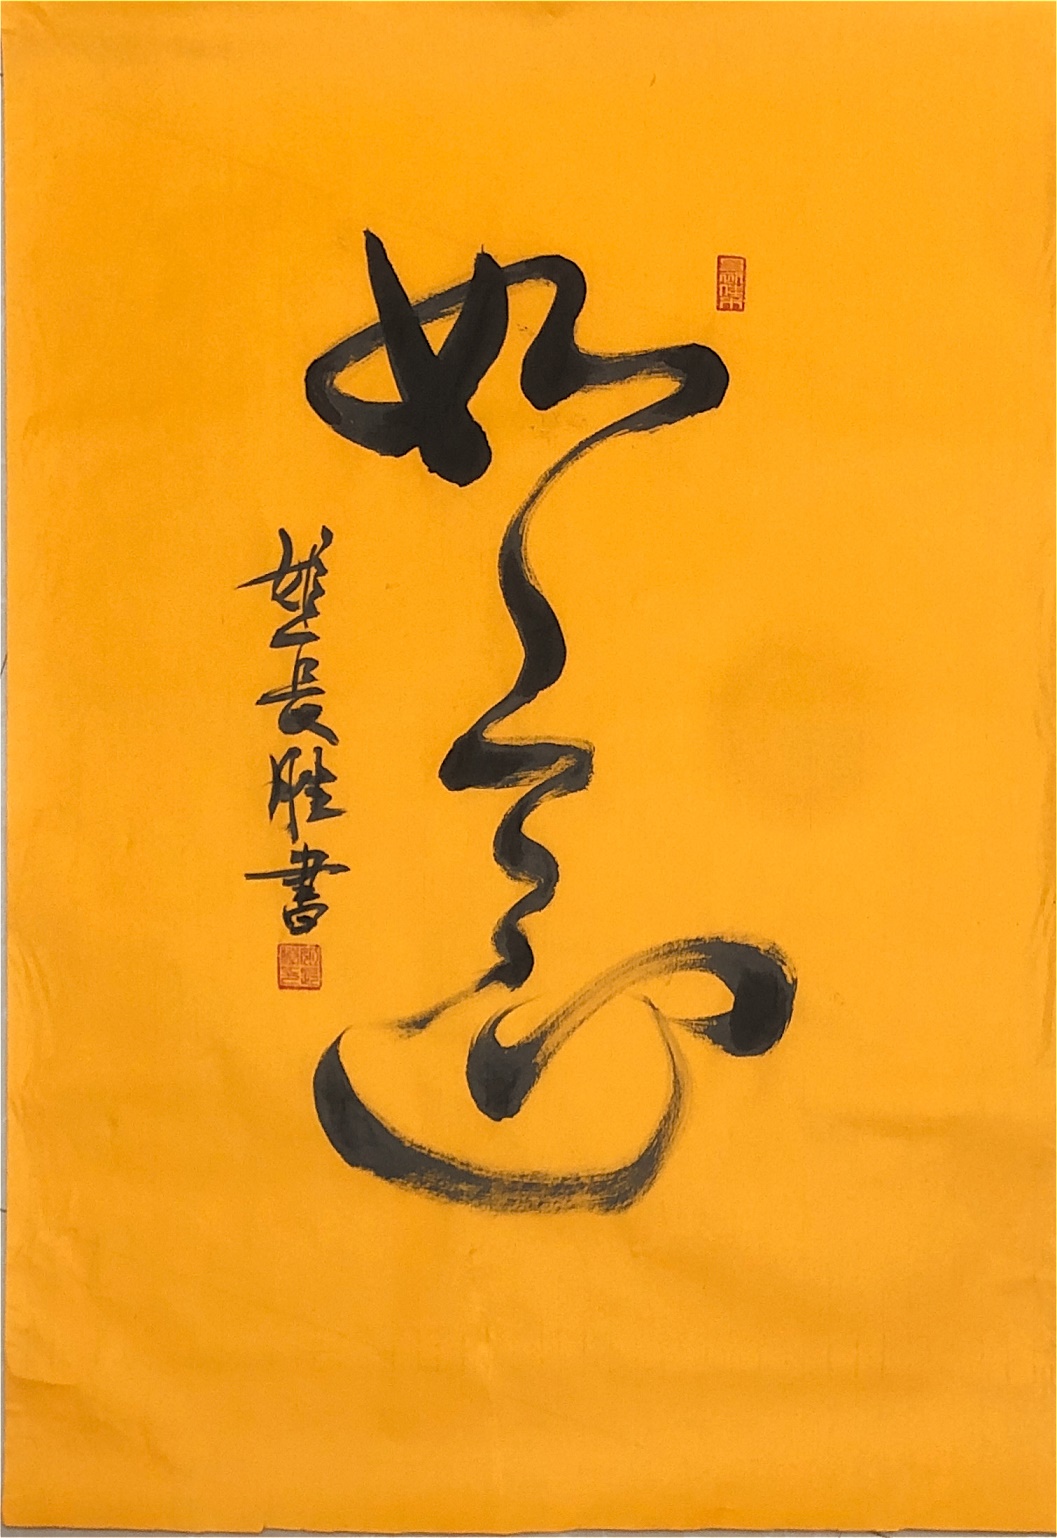 如意
長勝書